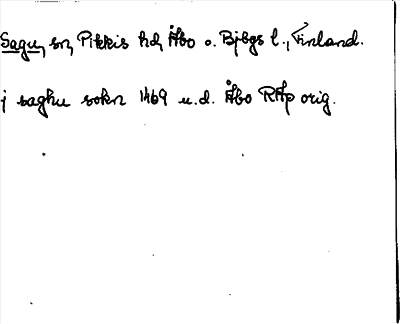 Sagu, sn, Pikkis hd, Åbo o. Bjbgs l., Finland.
j saghu sokn 1469 u.d. Åbo RAp orig.